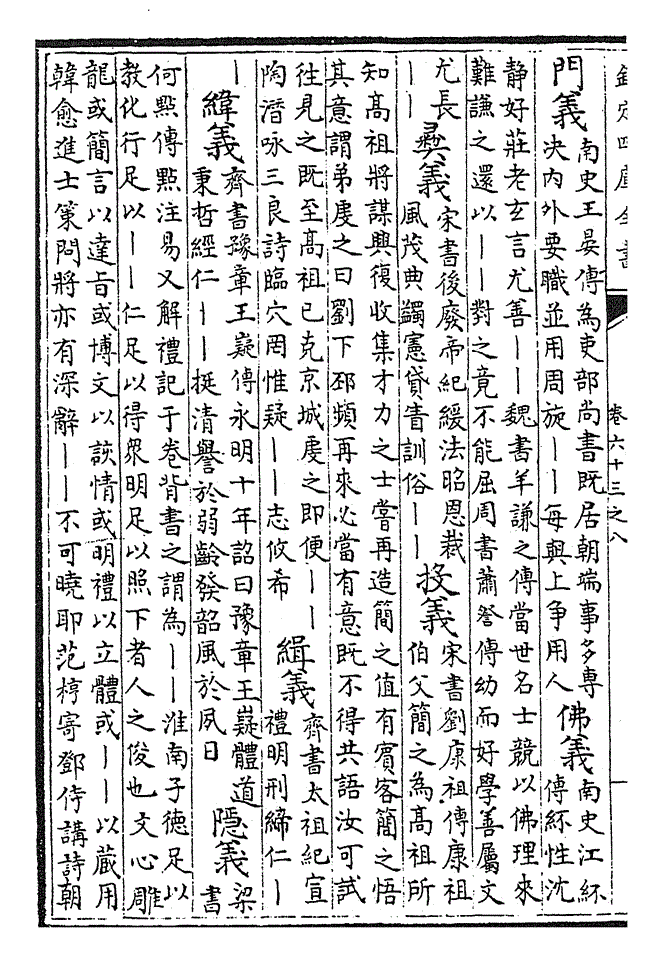 欽定四庫全書
卷六十三之八
一
門義南史王晏傳為吏部尚書既居朝端事多專
决内外要職並用周旋丨丨每與上爭用人佛義南史江紑
傳紑性沈
静好莊老玄言尤善丨丨魏書羊謙之傳當世名士競以佛理來
難謙之還以丨丨對之竟不能屈周書蕭詧傳幼而好學善屬文
尤長
丨丨彝義宋書後廢帝紀緩法昭恩裁
風茂典蠲憲貸眚訓俗丨丨投義宋書劉康祖傳康祖
伯父簡之為高祖所
知高祖將謀興復收集才力之士嘗再造簡之值有賓客簡之悟
其意謂弟虔之曰劉下邳頻再來必當有意既不得共語汝可試
往見之既至高祖已克京城虔之即便丨丨
陶潛咏三良詩臨穴罔惟疑丨丨志攸希緝義齊書太祖紀宣
禮明刑締仁丨
丨緯義齊書豫章王嶷傳永明十年詔曰豫章王嶷體道
秉哲經仁丨丨挺清譽於弱齡發韶風於夙日隱義梁
書
何㸃傳㸃注易又解禮記于卷背書之謂為丨丨淮南子德足以
教化行足以丨丨仁足以得衆明足以照下者人之俊也文心雕
龍或簡言以達旨或博文以該情或明禮以立體或丨丨以藏用
韓愈進士策問將亦有深辭丨丨不可曉耶范梈寄鄧侍講詩朝